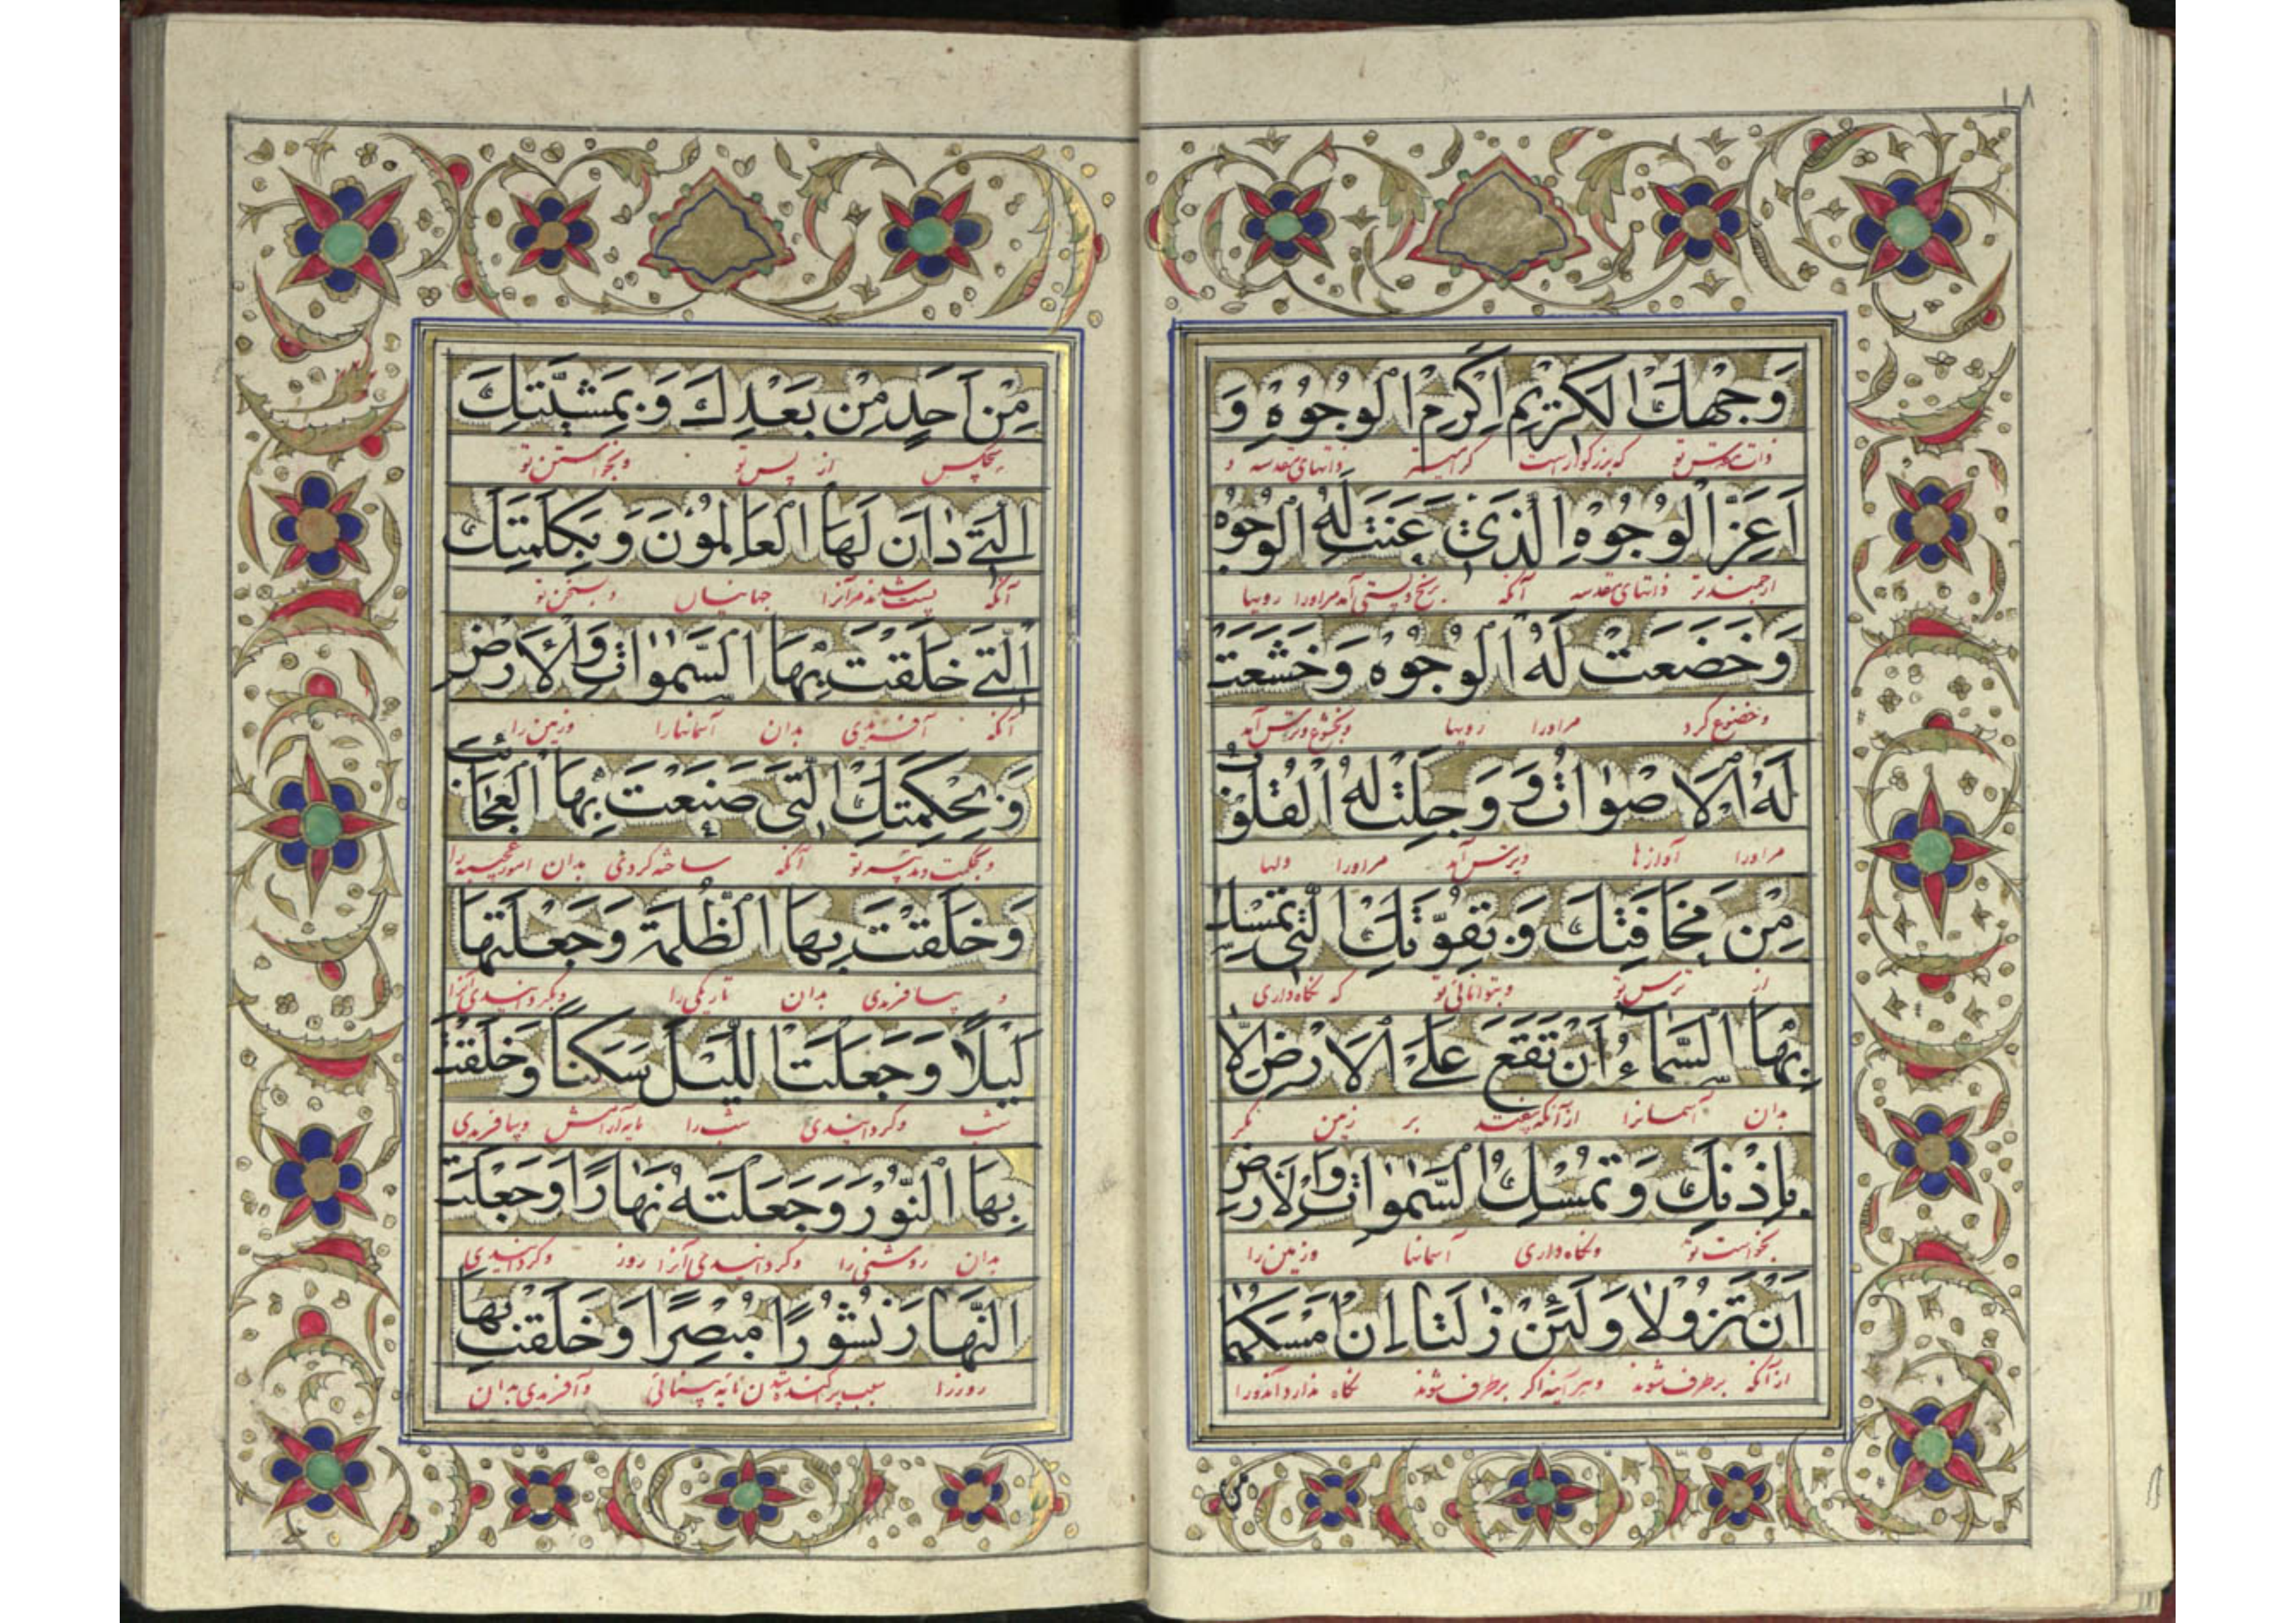 ١٨
وَجْهِكَ الْكَرِيمِ اَكْرَمِ الْوُجُوهِ وَ
ذات مقدس تو که بزرگوار است گرامیتر ذاتهای مقدسه و
اَعَزِّ الْوُجُوهِ الَّذِي عَنَتْ لَهُ الْوُجُوهُ
ارجمندتر ذاتهای مقدسه آنکه برنج و پستی آمد مر او را رویها
وَخَضَعَتْ لَهُ الْوُجُوهُ وَخَشَعَتْ
و خضوع کرد مر او را رویها و بخشوع و ترس آمد
لَهُ الْاَصْوَاتُ وَ وَجِلَتْ لَهُ الْقُلُوبُ
مر او را آوازها و بترس آمد مر او را دلها
مِنْ مَخَافَتِكَ وَ بِقُوَّتِكَ الَّتِي تُمْسِكُ
از ترس تو و بتوانائی تو که نگاه داری
بِهَا السَّمَاءَ اَنْ تَقَعَ عَلَى الْاَرْضِ اِلَّا
بدان آسمانرا از آنکه بیفتد بر زمین مگر
بِاِذْنِكَ وَ تُمْسِكُ السَّمٰوَاتِ وَالْاَرْضَ
بخواست تو و نگاه داری آسمانها و زمین را
اَنْ تَزُولَا وَلَئِنْ زَالَتَا اِنْ اَمْسَكَهُمَا
از آنکه برطرف شوند و هر آینه اگر برطرف شوند نگاه ندارد آندو را
مِنْ اَحَدٍ مِنْ بَعْدِكَ وَ بِمَشِيَّتِكَ
هیچکس از پس تو و بخواستن تو
الَّتِي دَانَ لَهَا الْعَالَمُونَ وَ بِكَلِمَتِكَ
آنکه پست شدند مر آنرا جهانیان و بسخن تو
الَّتِي خَلَقْتَ بِهَا السَّمٰوَاتِ وَالْاَرْضَ
آنکه آفریدی بدان آسمانها را و زمین را
وَ بِحِكْمَتِكَ الَّتِي صَنَعْتَ بِهَا الْعَجَائِبَ
آنکه ساخته کردی بدان امور عجیبه را
وَ خَلَقْتَ بِهَا الظُّلْمَةَ وَ جَعَلْتَهَا
و بیافریدی بدان تاریکی را و بگردانیدی آنرا
لَيْلًا وَ جَعَلْتَ اللَّيْلَ سَكَنًا وَ خَلَقْتَ
شب و گردانیدی شب را مایه آرامش و بیافریدی
بِهَا النُّورَ وَ جَعَلْتَهُ نَهَارًا وَ جَعَلْتَ
بدان روشنی را و گردانیدی آنرا روز و گردانیدی
النَّهَارَ نُشُورًا مُبْصِرًا وَ خَلَقْتَ بِهَا
روز را سبب پراکنده شدن مایه بینائی و آفریدی بدان